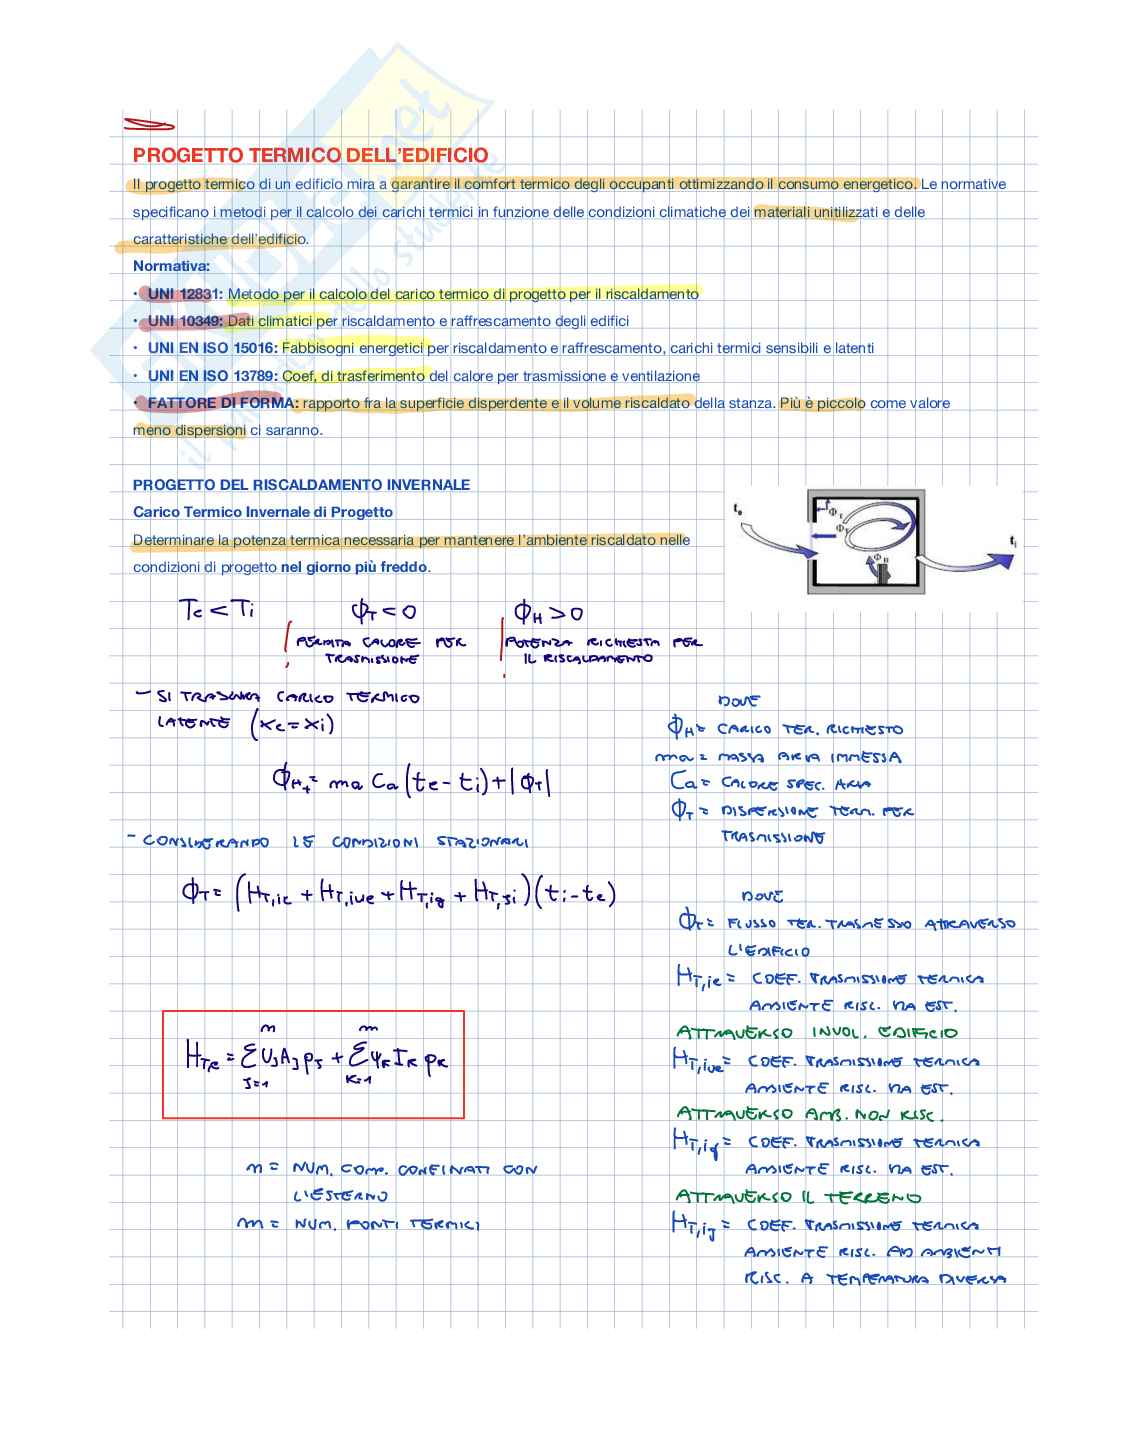 PROGETTO TERMICO DELL'EDIFICIO
Il progetto termico di un edificio mira a garantire il comfort termico degli occupanti ottimizzando il consumo energetico. Le normative
specificano i metodi per il calcolo dei carichi termici in funzione delle condizioni climatiche dei materiali unitilizzati e delle
caratteristiche dell'edificio.
Normativa:
• UNI 12831: Metodo per il calcolo del carico termico di progetto per il riscaldamento
• UNI 10349: Dati climatici per riscaldamento e raffrescamento degli edifici
• UNI EN ISO 15016: Fabbisogni energetici per riscaldamento e raffrescamento, carichi termici sensibili e latenti
• UNI EN ISO 13789: Coef, di trasferimento del calore per trasmissione e ventilazione
• FATTORE DI FORMA: rapporto fra la superficie disperdente e il volume riscaldato della stanza. Più è piccolo come valore
meno dispersioni ci saranno.
PROGETTO DEL RISCALDAMENTO INVERNALE
Carico Termico Invernale di Progetto
Determinare la potenza termica necessaria per mantenere l'ambiente riscaldato nelle
condizioni di progetto nel giorno più freddo.
te
ΦI
ΦT
ΦH
ti
Te < Ti ΦT < 0 ΦH > 0
PERDITA CALORE PER TRASMISSIONE
POTENZA RICHIESTA PER IL RISCALDAMENTO
- SI TRASCURA CARICO TERMICO
LATENTE (Xe = Xi)
ΦH+ = ma Ca (te - ti) + |ΦT|
DOVE
ΦH = CARICO TER. RICHIESTO
ma = MASSA ARIA IMMESSA
Ca = CALORE SPEC. ARIA
ΦT = DISPERSIONE TERM. PER
TRASMISSIONE
- CONSIDERANDO LE CONDIZIONI STAZIONARI
ΦT = (HT,ie + HT,iue + HT,ig + HT,ji)(ti - te)
DOVE
ΦT = FLUSSO TER. TRASMESSO ATTRAVERSO
L'EDIFICIO
HT,ie = COEF. TRASMISSIONE TERMICA
AMBIENTE RISC. VIA EST.
ATTRAVERSO INVOL. EDIFICIO
HT,iue = COEF. TRASMISSIONE TERMICA
AMBIENTE RISC. VIA EST.
ATTRAVERSO AMB. NON RISC.
HT,ig = COEF. TRASMISSIONE TERMICA
AMBIENTE RISC. VIA EST.
ATTRAVERSO IL TERRENO
HT,ij = COEF. TRASMISSIONE TERMICA
AMBIENTE RISC. AD AMBIENTI
RISC. A TEMPERATURA DIVERSA
n m
HTe = Σ UJ AJ pJ + Σ ψK IK pK
J=1 K=1
n = NUM. COMP. CONFINATI CON
L'ESTERNO
m = NUM. PONTI TERMICI